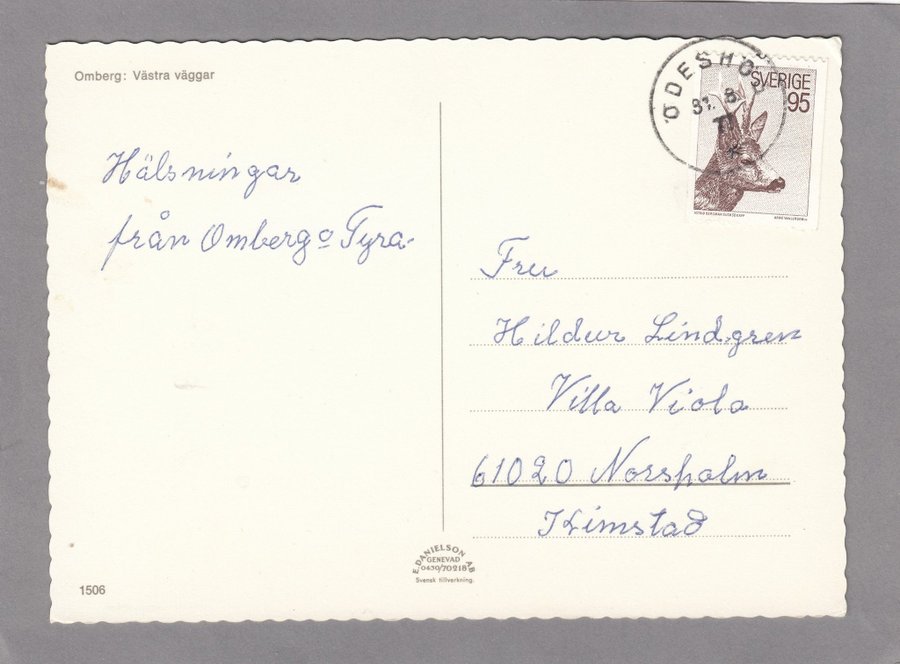 Omberg: Västra väggar
Hälsningar
från Omberg o Tyra.
ÖDESHÖG
31. 8.
77
SVERIGE
95
Fru
Hildur Lindgren
Villa Viola
61020 Norsholm
Kimstad
E. DANIELSON AB
GENEVAD
0430/70218
Svensk tillverkning.
1506